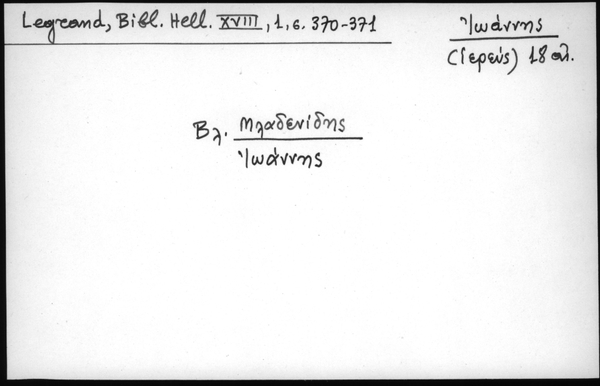 Legrand, Bibl. Hell. XVIII, 1, σ. 370-371
Ἰωάννης
(ἱερεύς) 18 αἰ.
Βλ. Μλαδενίδης
Ἰωάννης